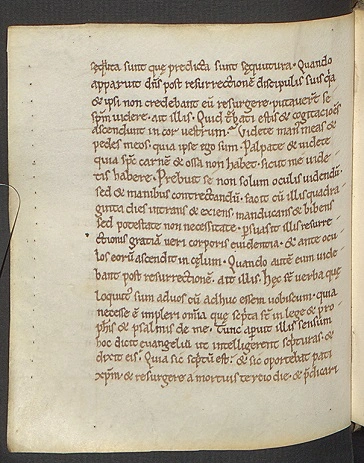 sęcuta sunt que predicta sunt sęquutura. Quando
apparuit dn̄s post resurrectionē discipulis suis q̄a
& ipsi non credebant eū resurgere. putaver̄t se
spm̄ videre. ait illis. Quid t̄bati estis & cogitationes
ascendunt in cor vestrum? Videte manus meas &
pedes meos. quia ipse ego sum. Palpate & videte
quia spc̄ carnē & ossa non habet. sicut me vide-
tis habere. Prębuit se non solum oculis videndū.
sed & manibus contrectandū. facit cū illis quadra
ginta dies intrans & exiens. manducans & bibens
sed potestate non necessitate. psuasit illis resurre-
ctionis gratiā veri corporis evidentia. & ante ocu-
los eorū ascendit in cęlum. Quando autē eum vide
bant post resurrectionē. ait illis. Hęc st̄ verba quę
loquut̾ sum ad vos cū adhuc essem vobiscum. quia
necesse ē impleri omnia quę scpta st̄ in lege & pro-
phis & psalmis de me. Tunc aperuit illis sensum
hoc dicit evangeliū ut intelligerent scpturas. &
dixit eis. Quia sic scptū est. & sic oportebat pati
xpm̄. & resurgere a mortuis tercio die. & p̄dicari